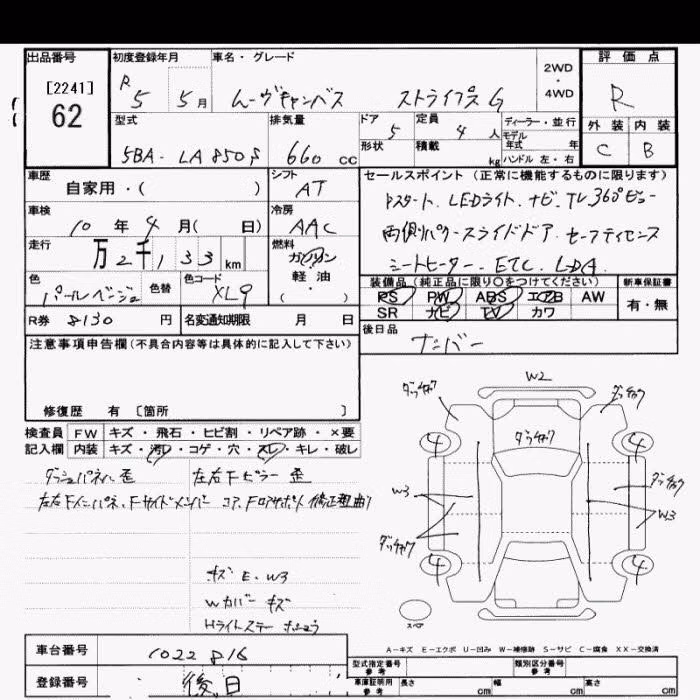 出品番号
[2241]
62
初度登録年月
R5 5月
車名・グレード
ムーヴキャンバス ストライプスG
2WD・4WD
評価点
R
外装 内装
C B
型式
5BA-LA850S
排気量
660 cc
ドア
5
形状
定員
4人
積載
kg
ディーラー・並行
モデル年式 年
ハンドル 左・右
車歴
自家用・( )
シフト
AT
車検
10年4月( 日)
冷房
AAC
走行
万2千133km
燃料
ガソリン
軽・油
・( )
色
パールベージュ
色替
色コード
XL9
R券 8130円
名変通知期限 月 日
セールスポイント(正常に機能するものに限ります)
Pスタート. LEDライト. ナビ. TV. 360°ビュー
両側パワースライドドア. セーフティセンス
シートヒーター. ETC. LDA.
装備品(純正品に限り○をつけてください)
PS PW ABS エアB AW
SR ナビ TV カワ
新車保証書
有・無
後日品
ナンバー
注意事項申告欄(不具合内容等は具体的に記入して下さい)
修復歴 有〔箇所 〕
検査員記入欄
FW キズ・飛石・ヒビ割・リペア跡・×要
内装 キズ・汚レ・コゲ・穴・スレ・キレ・破レ
ダッシュパネル歪 左右Fピラー歪
左右Fインパネ、Fサイドメンバー コア、Fロアサポート 修正理曲り
キズ E. W3
Wカバー キズ
Hライトステー
W2
ダッチャク
ダッチャク
ダッチャク
4
4
W3
ダッチャク
W3
ダッチャク
4
4
スペア
A−キズ E−エクボ U−凹み W−補修跡 S−サビ C−腐食 XX−交換済
車台番号
1022816
登録番号
後日
型式指定番号 参考
類別区分番号 参考
車庫証明用 参考
長さ cm
幅 cm
高さ cm